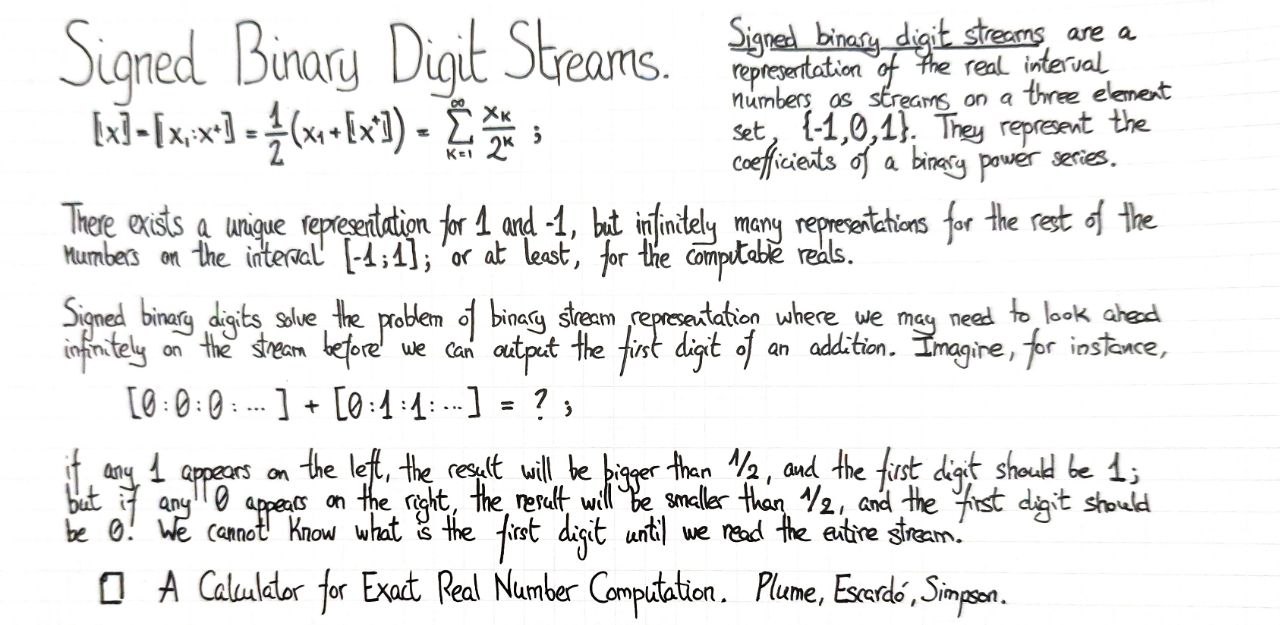 Signed Binary Digit Streams.
[x] = [x₁:x⁺] = 1/2 (x₁ + [x⁺]) = ∑_{k=1}^{∞} x_k/2^k ;
Signed binary digit streams are a
representation of the real interval
numbers as streams on a three element
set, {-1,0,1}. They represent the
coefficients of a binary power series.
There exists a unique representation for 1 and -1, but infinitely many representations for the rest of the
numbers on the interval [-1;1]; or at least, for the computable reals.
Signed binary digits solve the problem of binary stream representation where we may need to look ahead
infinitely on the stream before we can output the first digit of an addition. Imagine, for instance,
[0:0:0: ... ] + [0:1:1: ... ] = ? ;
if any 1 appears on the left, the result will be bigger than 1/2, and the first digit should be 1;
but if any 0 appears on the right, the result will be smaller than 1/2, and the first digit should
be 0! We cannot know what is the first digit until we read the entire stream.
□ A Calculator for Exact Real Number Computation. Plume, Escardó, Simpson.